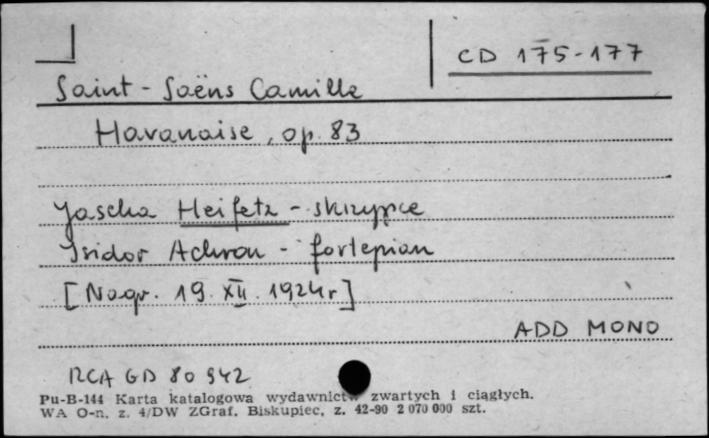 CD 175-177
Saint-Saëns Camille
Havanaise, op. 83
Jascha Heifetz - skrzypce
Isidor Achron - fortepian
[Nagr. 19. XII. 1924r]
ADD MONO
RCA GD 80 942
Pu-B-144 Karta katalogowa wydawnictw zwartych i ciągłych.
WA O-n. z. 4/DW ZGraf. Biskupiec, z. 42-90 2 070 000 szt.